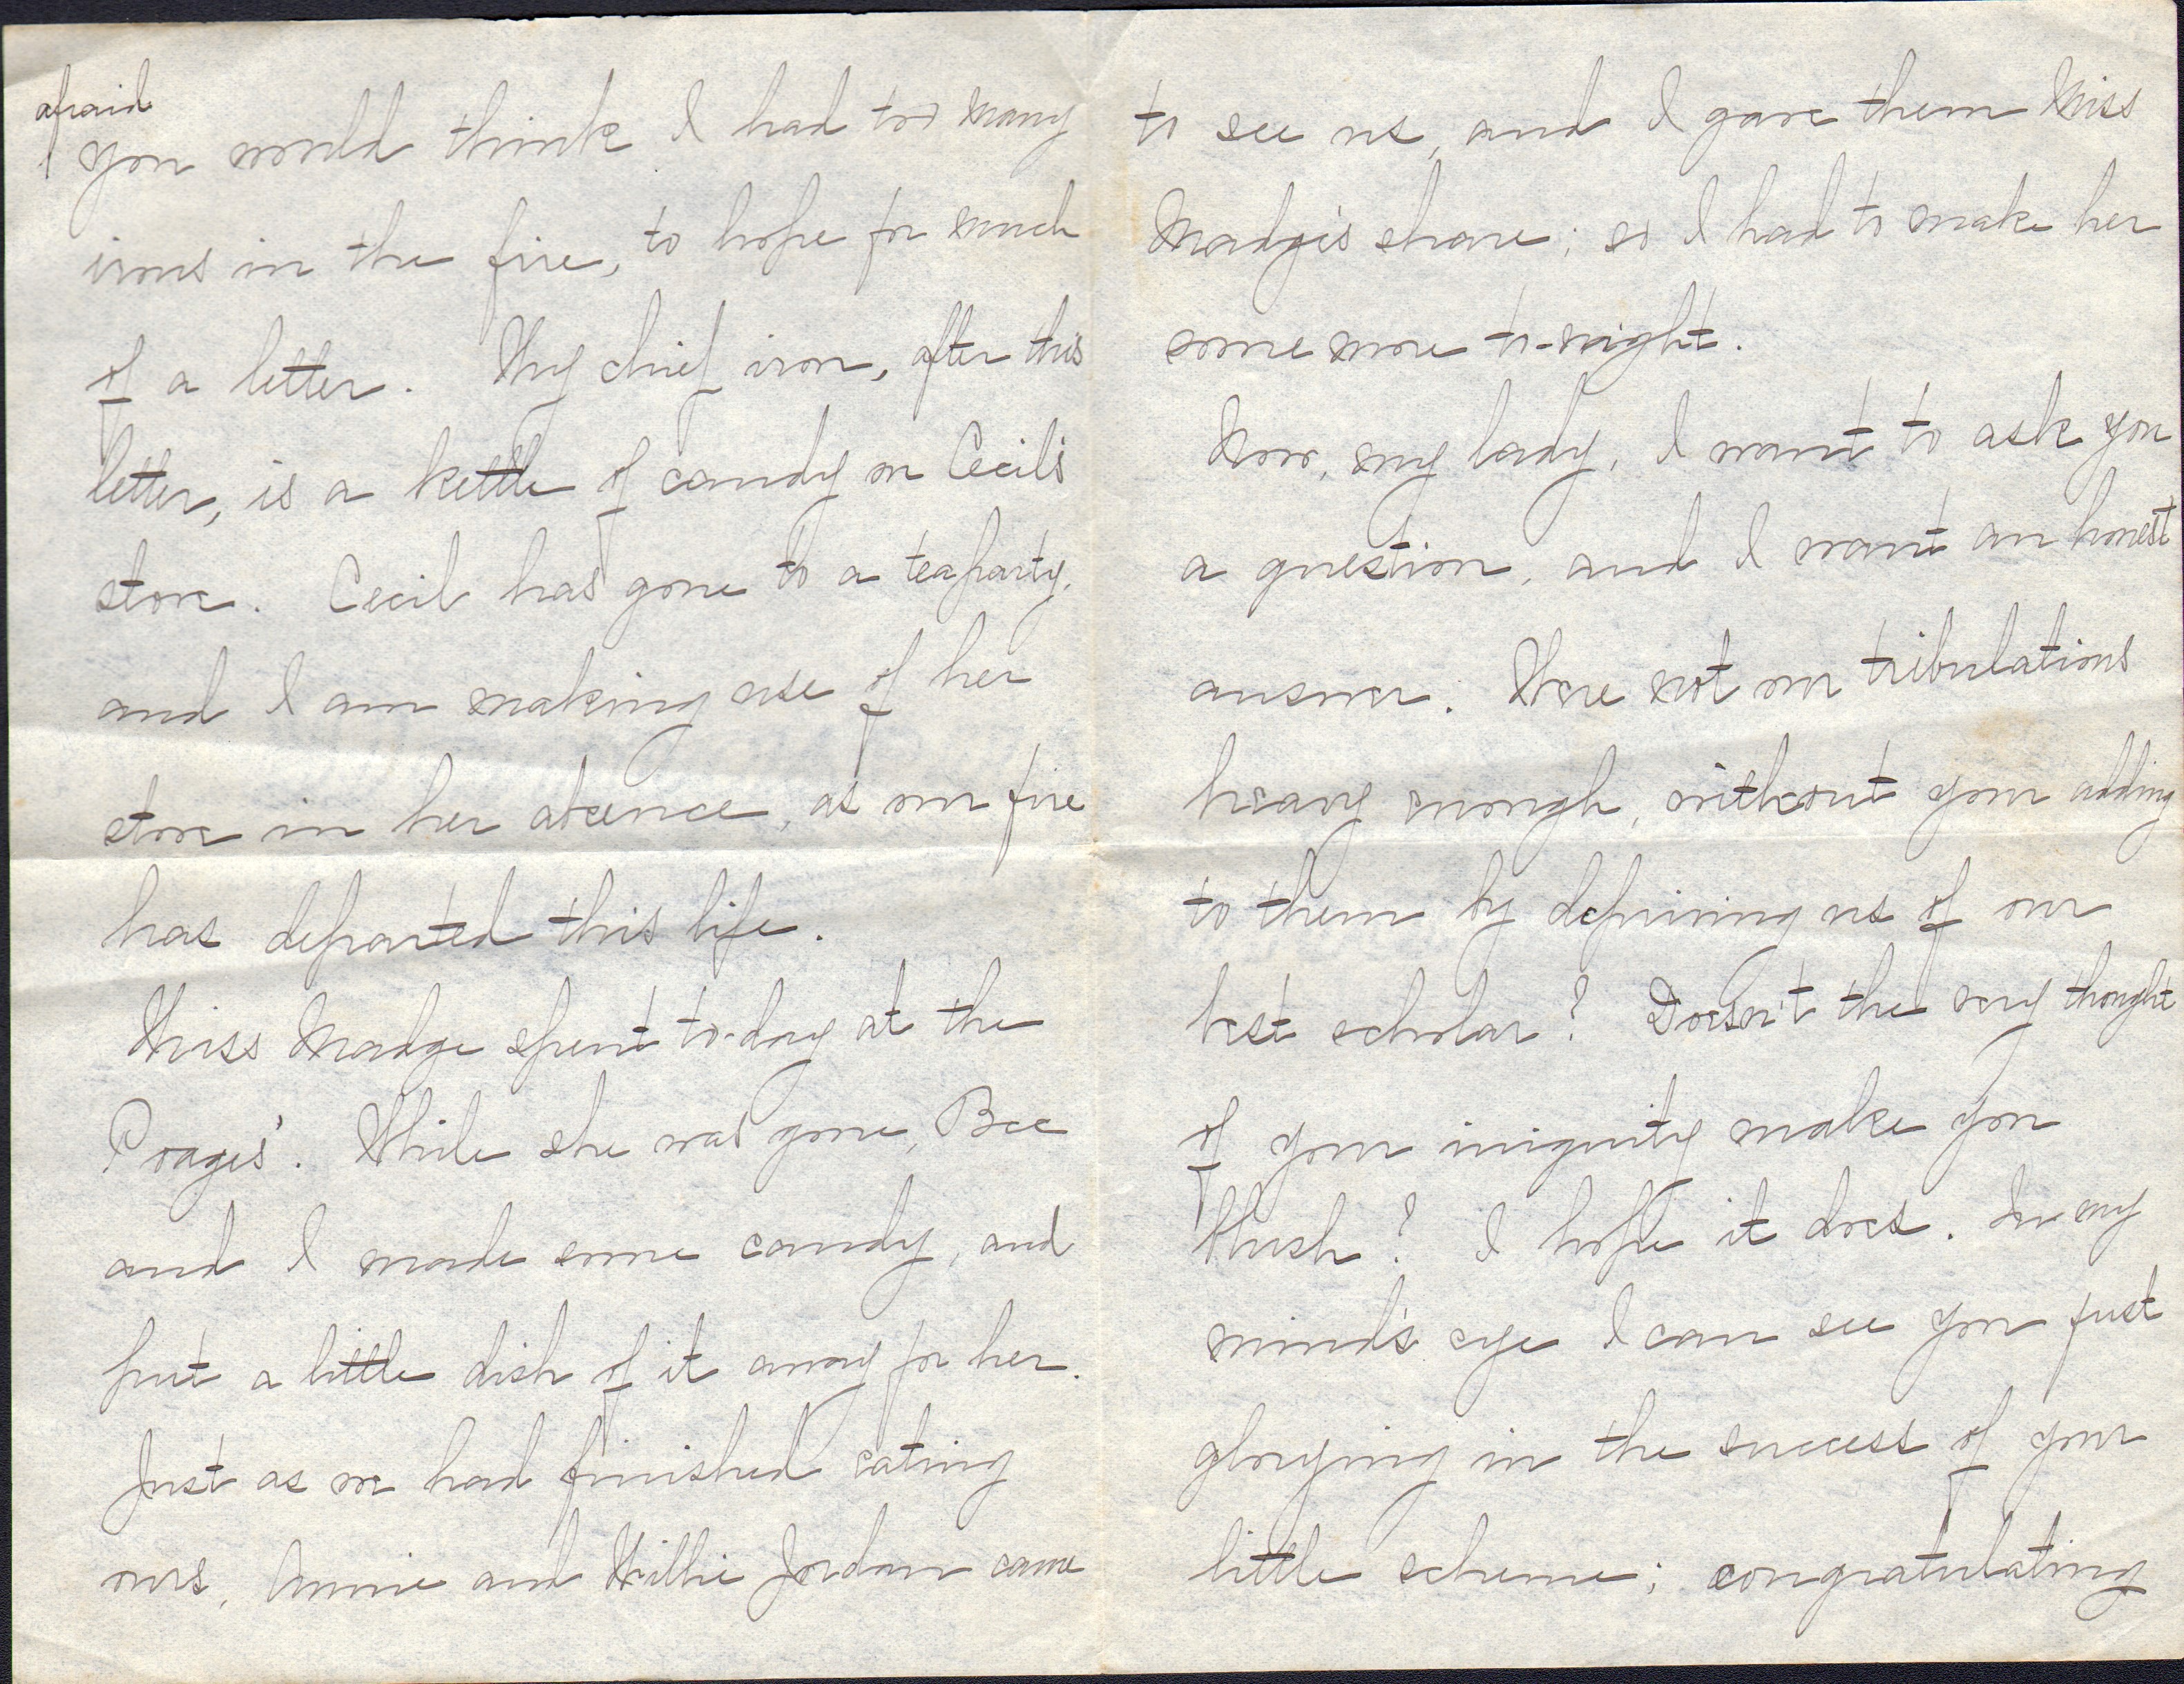 afraid
you would think I had too many
irons in the fire, to hope for much
of a letter. My chief iron, after this
letter, is a kettle of candy on Cecil's
stove. Cecil has gone to a teaparty,
and I am making use of her
stove in her absence, as our fire
has departed this life.
Miss Madge spent to-day at the
Poages'. While she was gone, Bee
and I made some candy, and
put a little dish of it away for her.
Just as we had finished eating
ours, Annie and Willie Jordan came
to see us, and I gave them Miss
Madge's share; so I had to make her
some more to-night.
Now, my lady, I want to ask you
a question, and I want an honest
answer. Were not our tribulations
heavy enough, without your adding
to them by depriving us of our
best scholar? Doesn't the very thought
of your iniquity make you
blush? I hope it does. In my
mind's eye I can see you just
glorying in the success of your
little scheme; congratulating